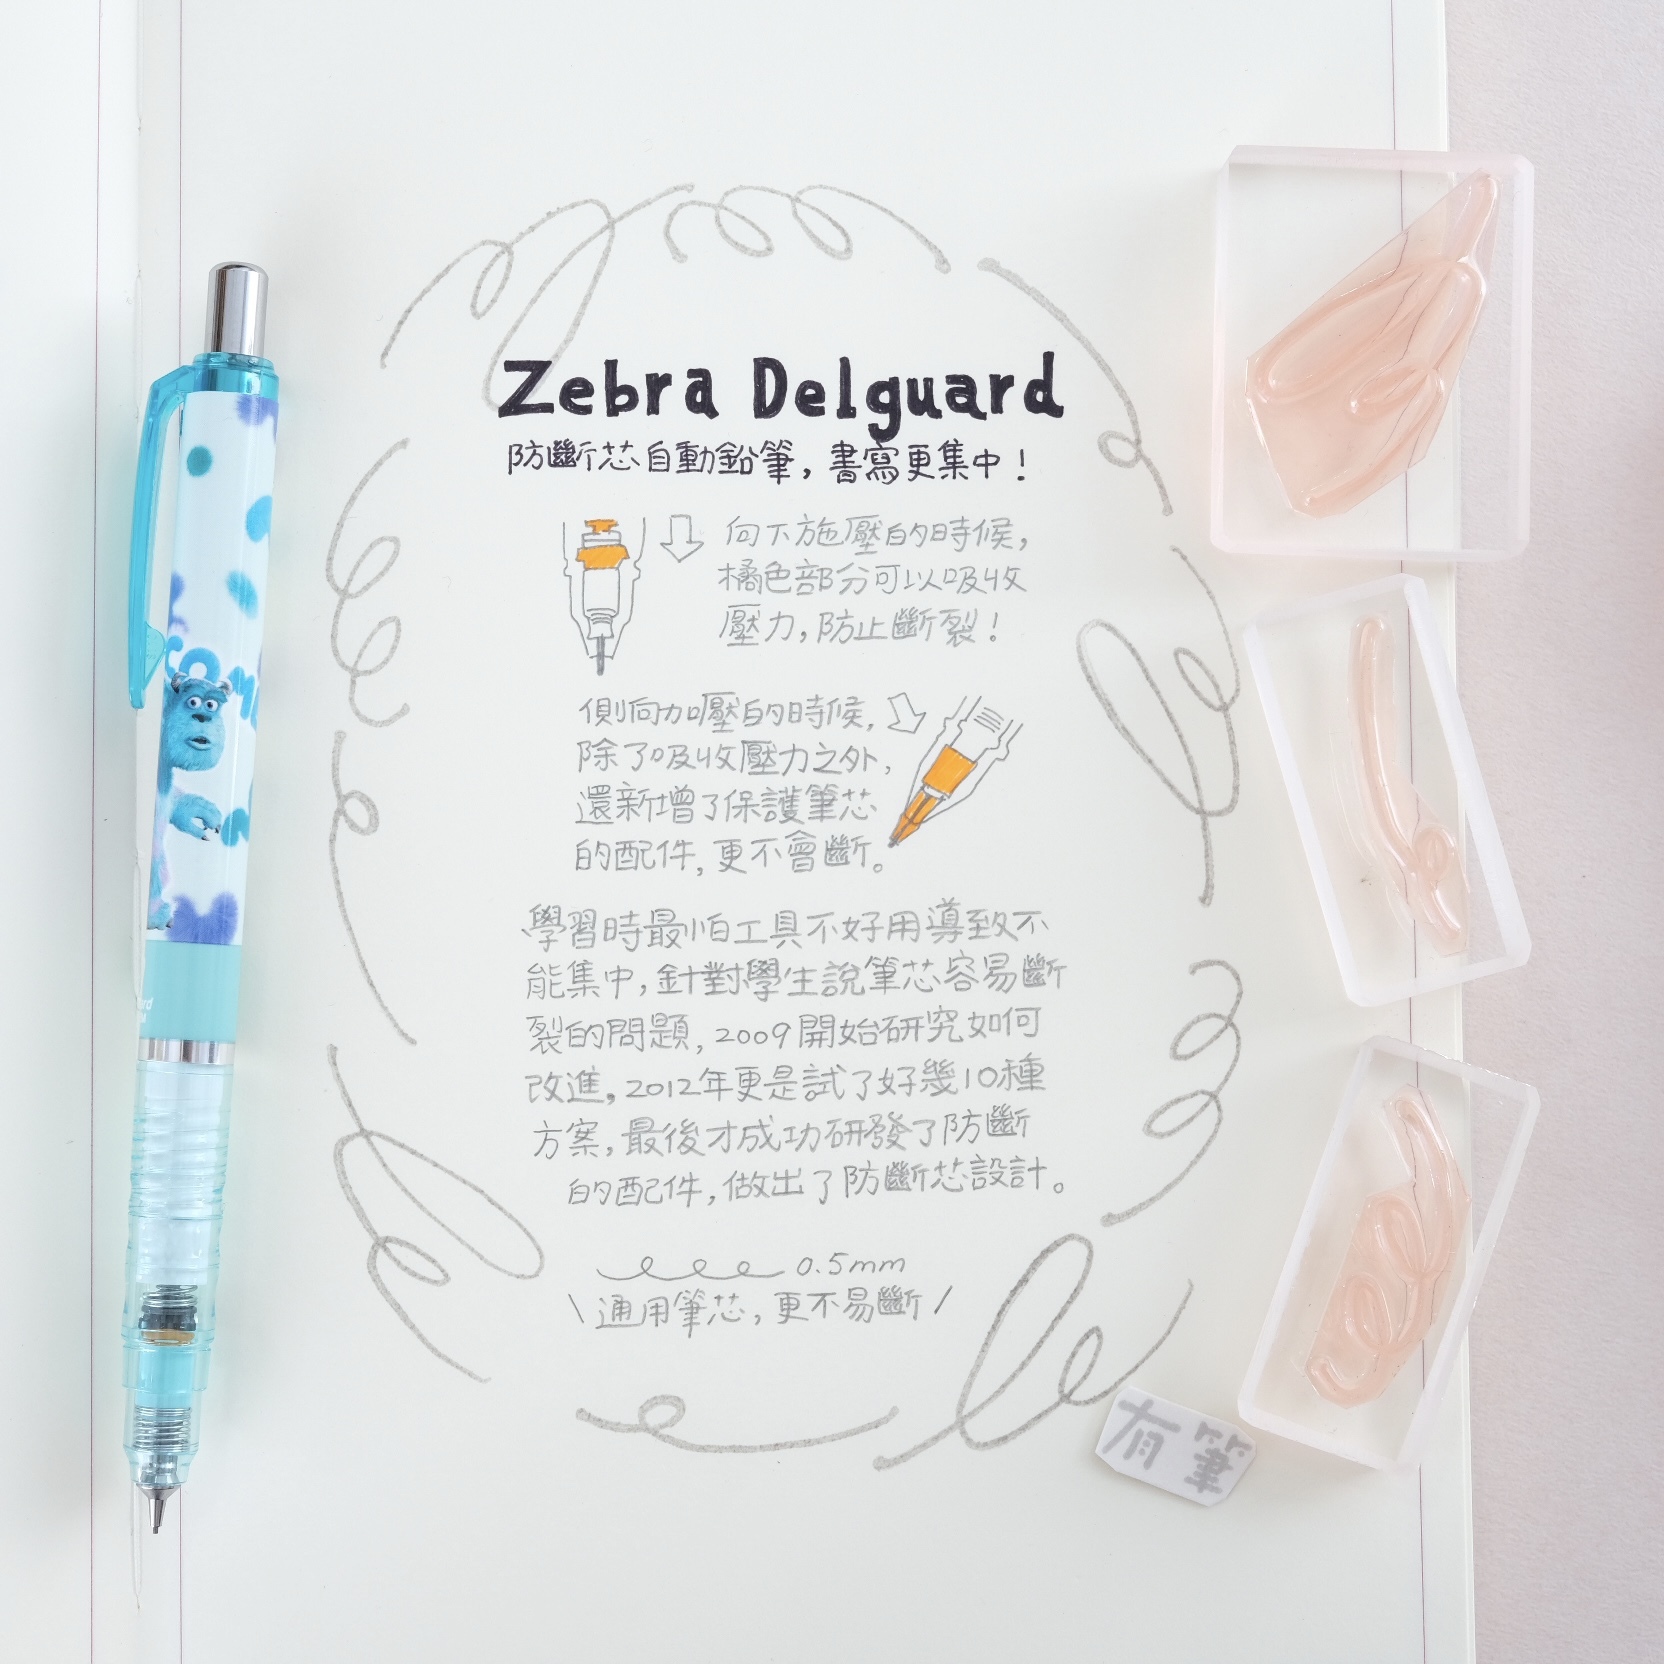 Zebra Delguard
防斷芯自動鉛筆，書寫更集中！
向下施壓的時候，
橘色部分可以吸收
壓力，防止斷裂！
側向加壓的時候，
除了吸收壓力之外，
還新增了保護筆芯
的配件，更不會斷。
學習時最怕工具不好用導致不
能集中，針對學生說筆芯容易斷
裂的問題，2009開始研究如何
改進，2012年更是試了好幾10種
方案，最後才成功研發了防斷
的配件，做出了防斷芯設計。
0.5mm
\通用筆芯，更不易斷/
有筆